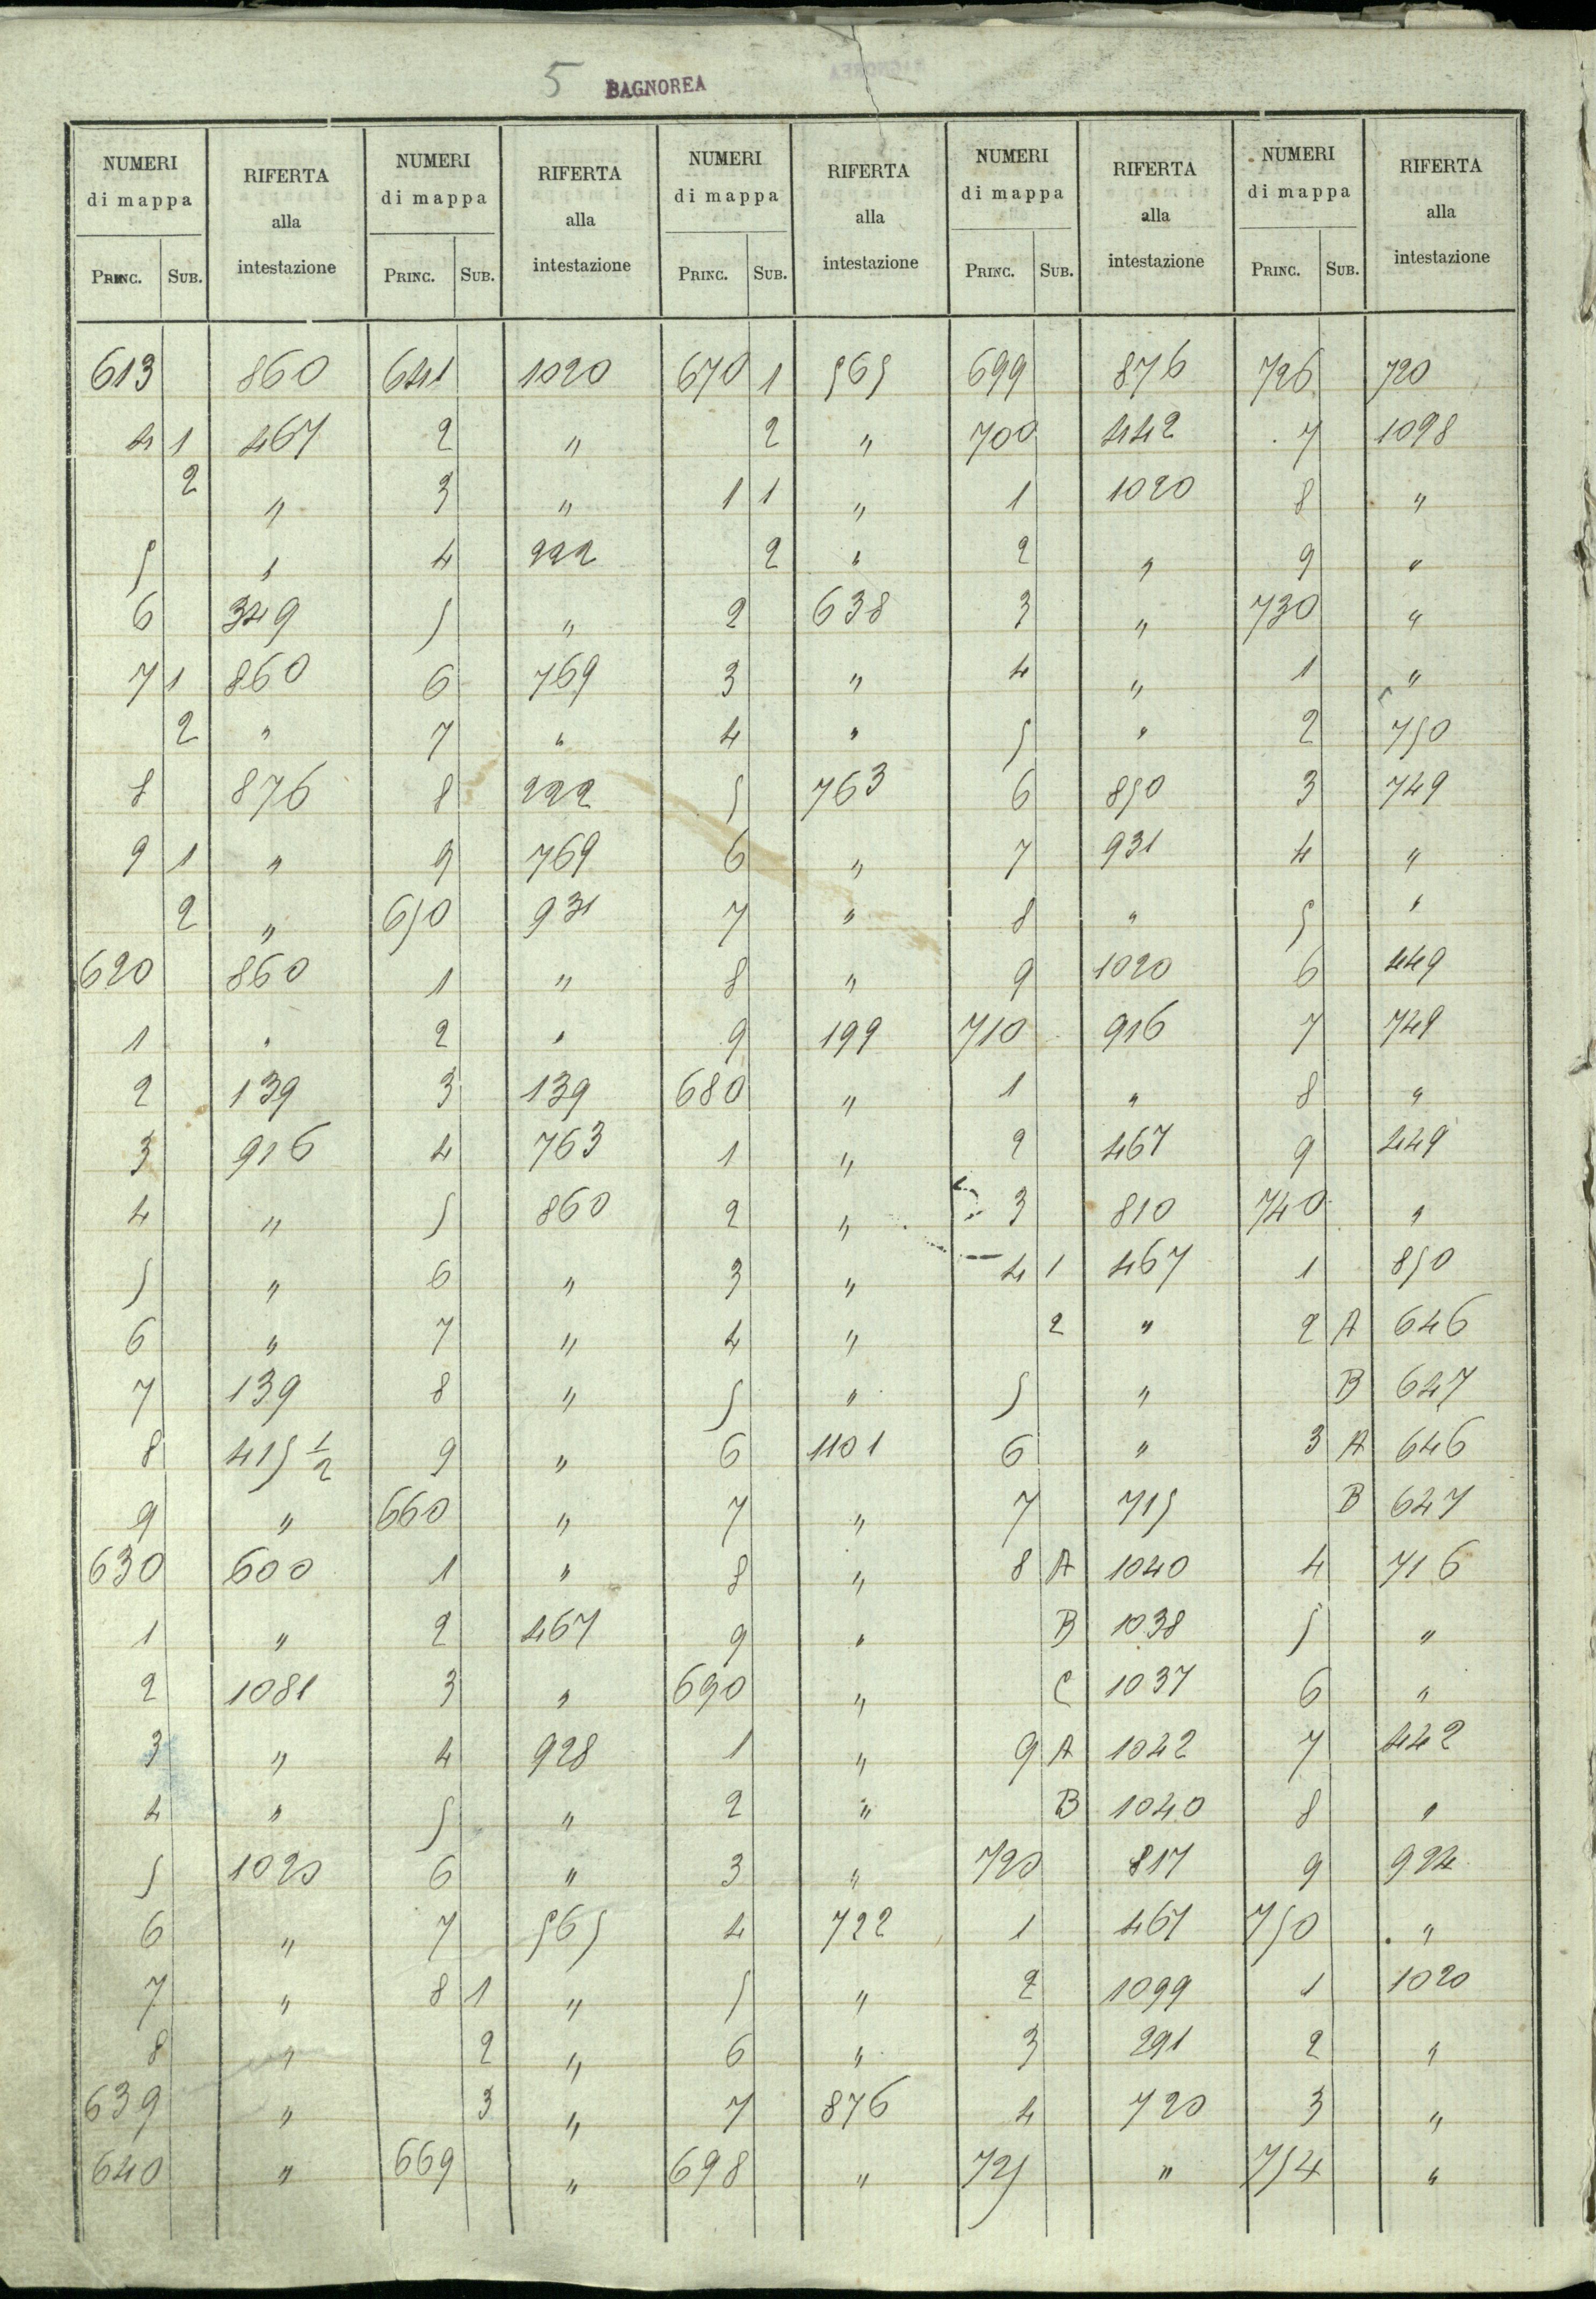 5 BAGNOREA
NUMERI di mappa RIFERTA alla intestazione NUMERI di mappa RIFERTA alla intestazione NUMERI di mappa RIFERTA alla intestazione NUMERI di mappa RIFERTA alla intestazione NUMERI di mappa RIFERTA alla intestazione
PRINC. SUB. PRINC. SUB. PRINC. SUB. PRINC. SUB. PRINC. SUB.
613 860 641 1020 670 1 565 699 876 726 720
4 1 467 2 " 2 " 700 442 7 1098
2 " 3 " 1 1 " 1 1020 8 "
5 " 4 222 2 " 2 " 9 "
6 349 5 " 2 638 3 " 730 "
7 1 860 6 769 3 " 4 " 1 "
2 " 7 " 4 " 5 " 2 750
8 876 8 222 5 763 6 850 3 749
9 1 " 9 769 6 " 7 931 4 "
2 " 650 931 7 " 8 " 5 "
620 860 1 " 8 " 9 1020 6 449
1 " 2 " 9 199 710 916 7 749
2 139 3 139 680 " 1 " 8 "
3 916 4 763 1 " 2 467 9 449
4 " 5 860 2 " 3 810 740 "
5 " 6 " 3 " 4 1 467 1 850
6 " 7 " 4 " 2 " 2 A 646
7 139 8 " 5 " 5 " B 647
8 415 1/2 9 " 6 1101 6 " 3 A 646
9 " 660 " 7 " 7 715 B 647
630 600 1 " 8 " 8 A 1040 4 716
1 " 2 467 9 " B 1038 5 "
2 1081 3 " 690 " C 1037 6 "
3 " 4 928 1 " 9 A 1042 7 442
4 " 5 " 2 " B 1040 8 "
5 1020 6 " 3 " 720 817 9 924
6 " 7 565 4 722 1 467 750 "
7 " 8 1 " 5 " 2 1099 1 1020
8 " 2 " 6 " 3 291 2 "
639 " 3 " 7 876 4 720 3 "
640 " 669 " 698 " 725 " 754 "